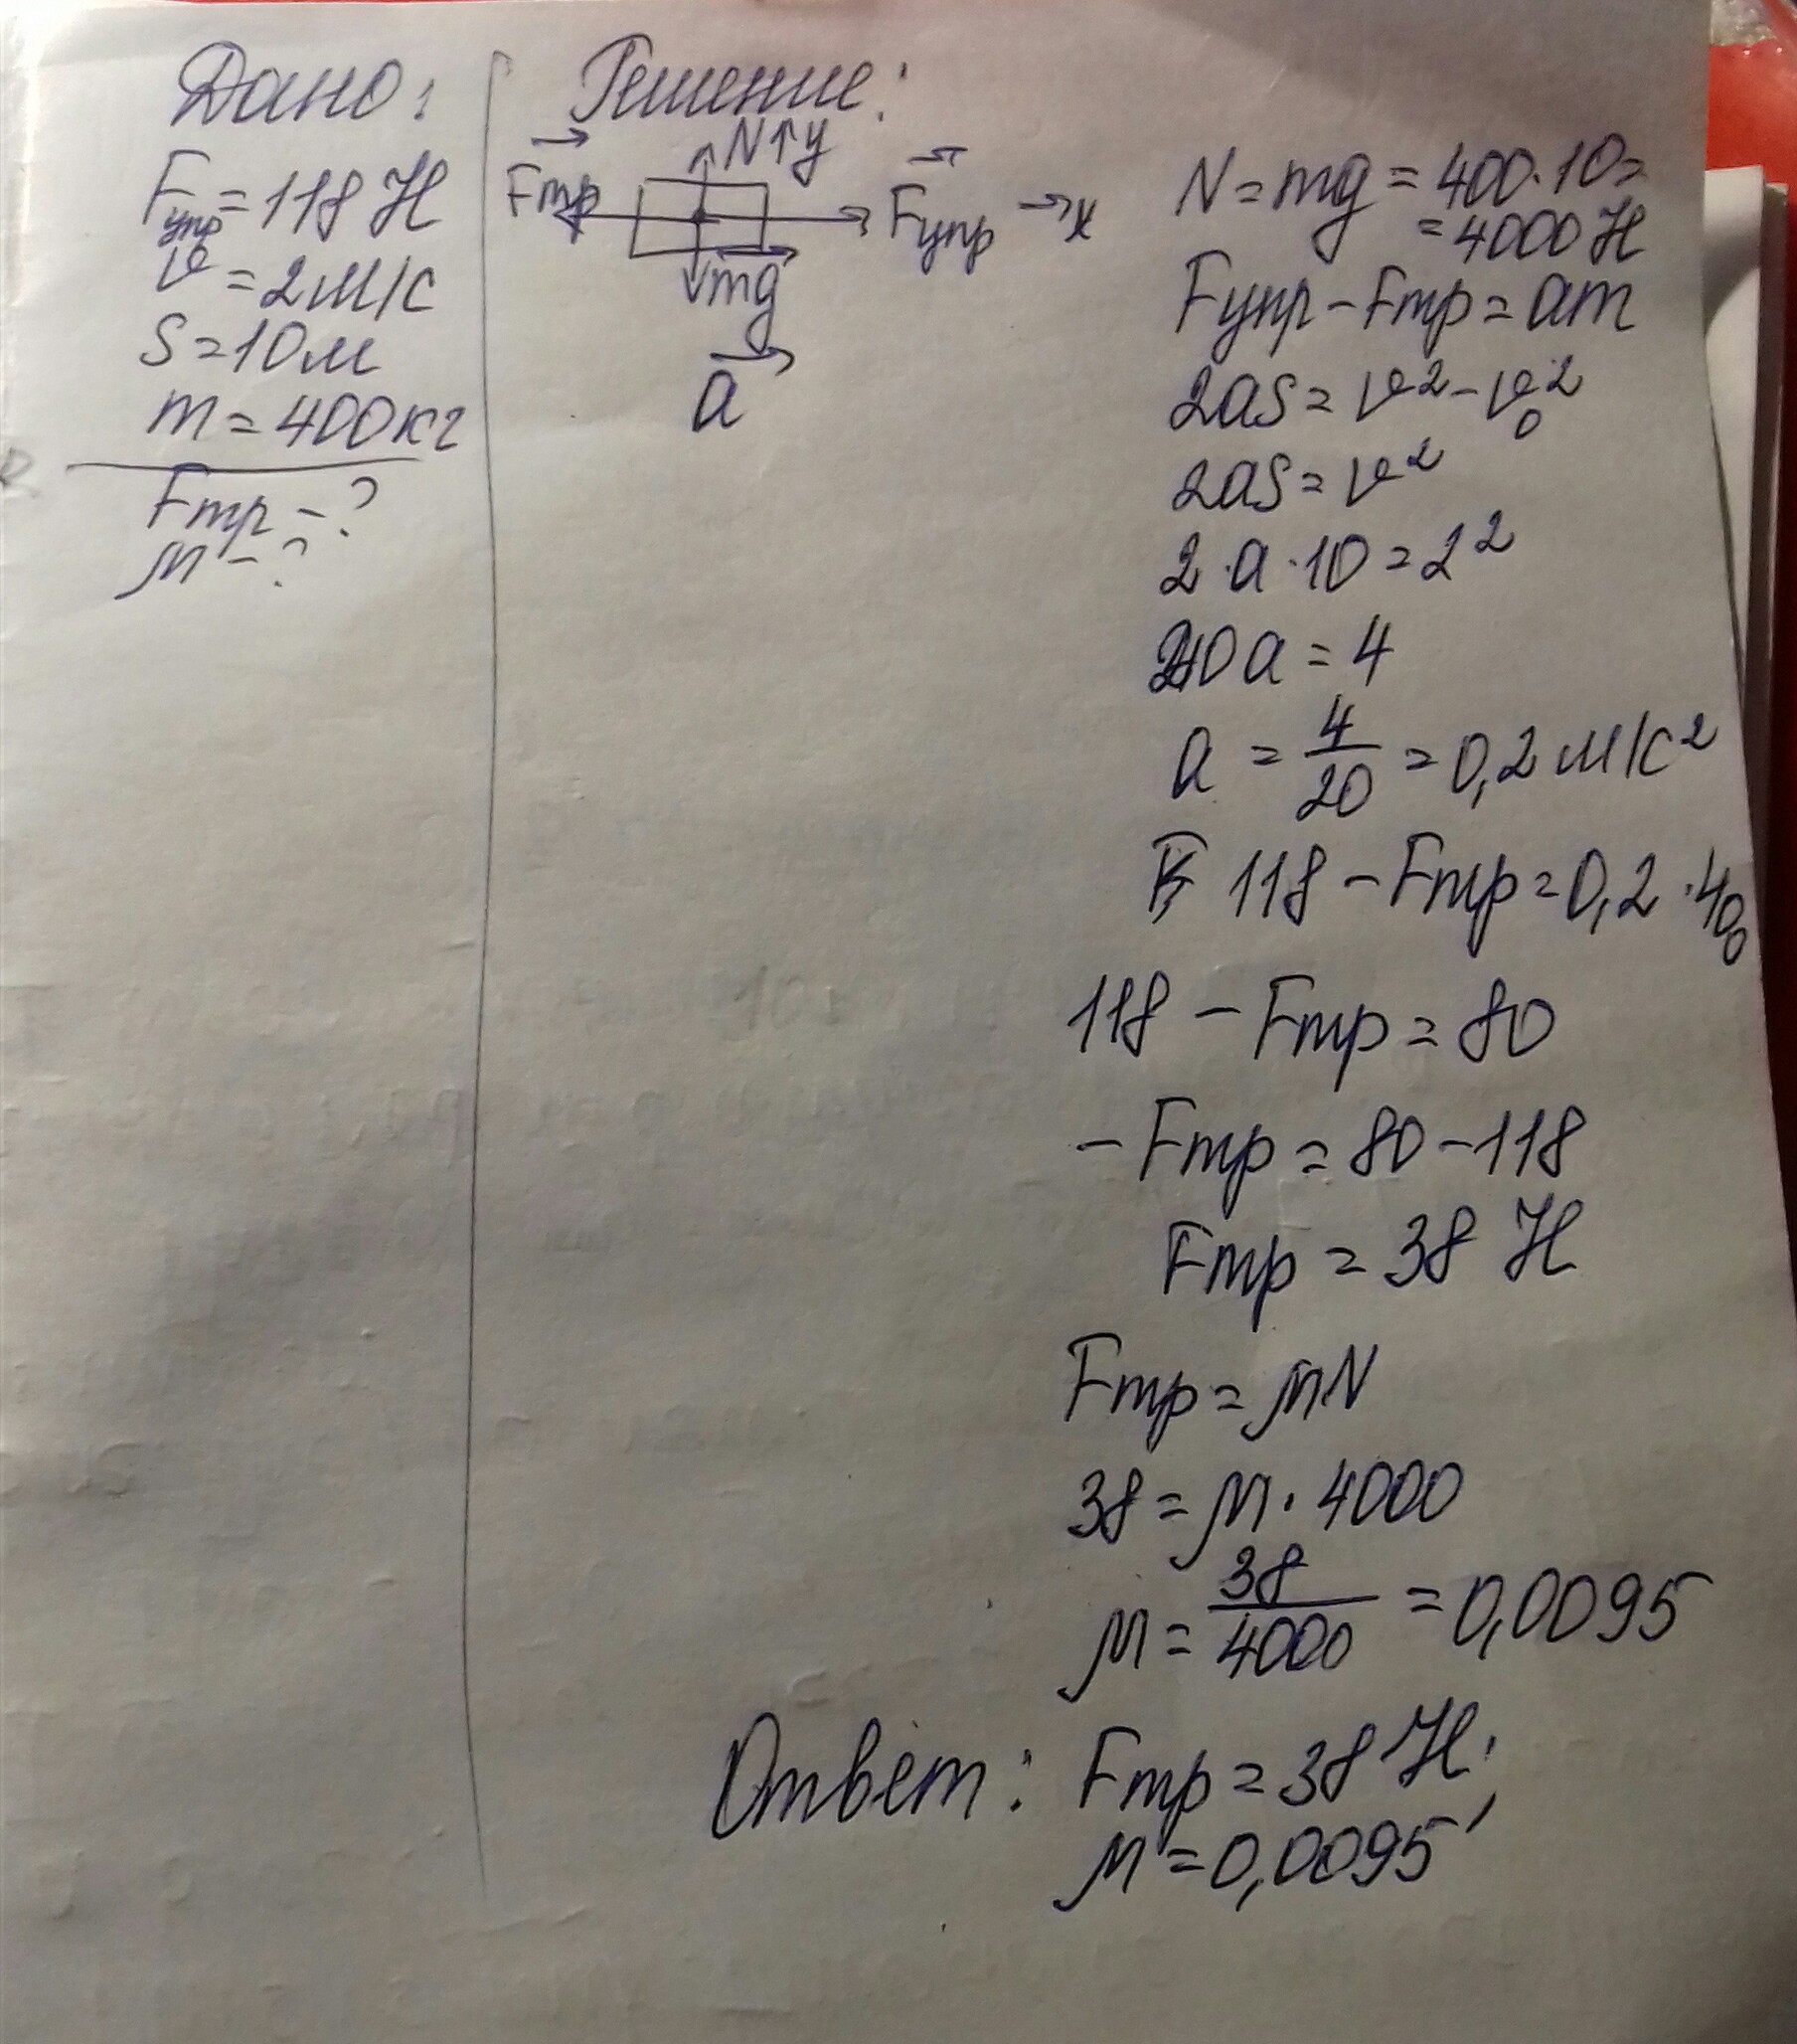 Дано:
Fупр = 118 Н
v = 2 м/с
S = 10 м
m = 400 кг
Fтр - ?
μ - ?
Решение:
N↑y
Fтр
Fупр → x
mg
a
N = mg = 400·10 =
= 4000 Н
Fупр - Fтр = am
2as = v² - v₀²
2as = v²
2·a·10 = 2²
20a = 4
a = 4/20 = 0,2 м/с²
118 - Fтр = 0,2·400
118 - Fтр = 80
- Fтр = 80 - 118
Fтр = 38 Н
Fтр = μN
38 = μ·4000
μ = 38/4000 = 0,0095
Ответ: Fтр = 38 Н;
μ = 0,0095